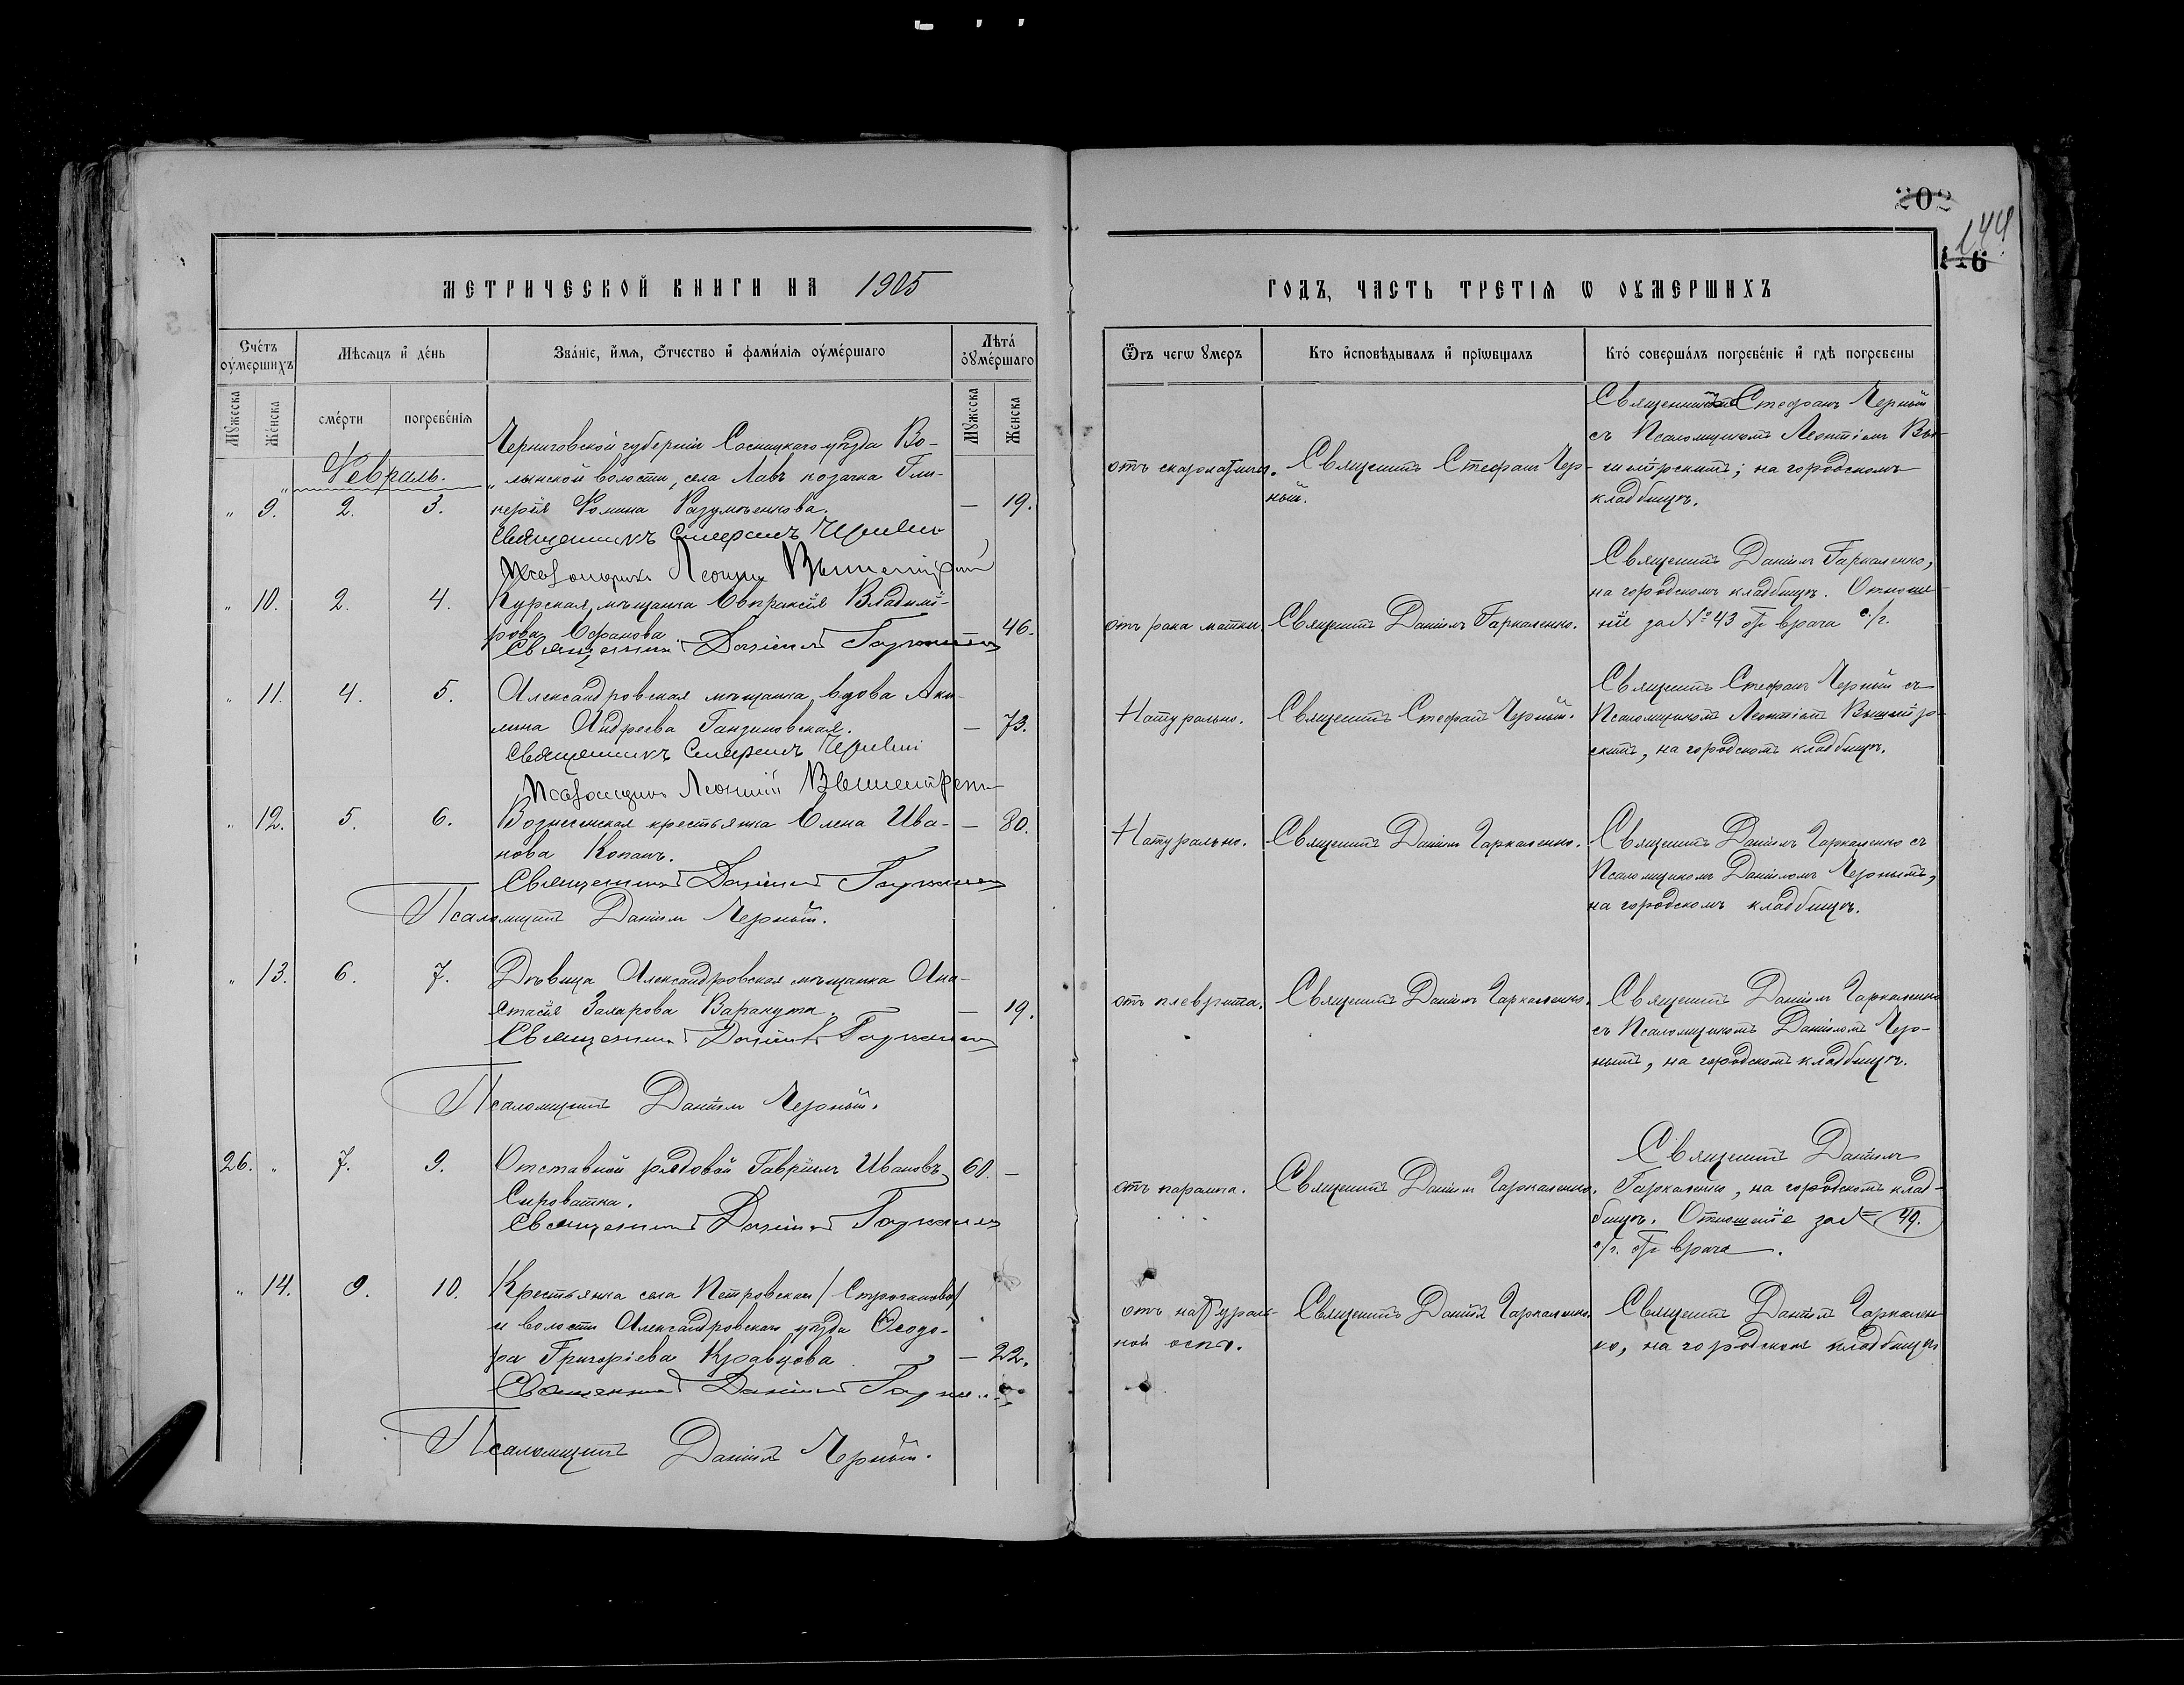 202
144
116
МЕТРИЧЕСКОЙ КНИГИ НА 1905
ГОДЪ, ЧАСТЬ ТРЕТІѦ Ѡ ОУМЕРШИХЪ
Сче́тъ оу҆ме́ршихъ
Мѣсѧцъ и҆ де́нь
Зва́нїе, и҆́мѧ, ѻ҆́тчество и҆ фами́лїѧ оу҆ме́ршаго
Лѣта́ оу҆ме́ршаго
Мꙋжеска
Же́нска
сме́рти
погребе́нїѧ
Мꙋжеска
Женска
Ѿ чегѡ ᲂумеръ
Кто и҆сповѣдывалъ и҆ прїѡбщалъ
Кто́ соверша́лъ погребе́нїе и҆ гдѣ погребены
Февраль.
Черниговской губерніи Сосницкаго уѣзда Во-
" лынской волости, села Лавъ козачка Гли-
" 9. 2. 3. керія Фомина Разумѣенкова. — 19.
Священникъ Стефанъ Черный
Псаломщикъ Леонтій Вышемірскій
отъ скарлатины.
Священникъ Стефанъ Чер-
ный.
Священникъ Стефанъ Черный
съ Псаломщикомъ Леонтіемъ Вы-
шемірскимъ; на городскомъ
кладбищѣ.
" 10. 2. 4. Курская мѣщанка Евпраксія Владимі-
рова Ефанова. — 46.
Священникъ Даніилъ Гаркаленко
отъ рака матки.
Священникъ Даніилъ Гаркаленко.
Священникъ Даніилъ Гаркаленко,
на городскомъ кладбищѣ. Отноше-
ніе за № 43 отъ врача с/г.
" 11. 4. 5. Александровская мѣщанка, вдова Аки-
лина Андреева Ганзиковская. — 73.
Священникъ Стефанъ Черный
Псаломщикъ Леонтій Вышемірскій
Натурально.
Священникъ Стефанъ Черный.
Священникъ Стефанъ Черный съ
Псаломщикомъ Леонтіемъ Вышемір-
скимъ, на городскомъ кладбищѣ.
" 12. 5. 6. Вознесенская крестьянка Елена Ива- — 80.
нова Копанъ.
Священникъ Даніилъ Гаркаленко
Псаломщикъ Даніилъ Черный.
Натурально.
Священникъ Даніилъ Гаркаленко.
Священникъ Даніилъ Гаркаленко съ
Псаломщикомъ Даніиломъ Чернымъ,
на городскомъ кладбищѣ.
" 13. 6. 7. Дѣвица Александровская мѣщанка Ана-
стасія Захарова Варакута. — 19.
Священникъ Даніилъ Гаркаленко
Псаломщикъ Даніилъ Черный.
отъ плеврита.
Священникъ Даніилъ Гаркаленко.
Священникъ Даніилъ Гаркаленко
съ Псаломщикомъ Даніиломъ Чер-
нымъ, на городскомъ кладбищѣ.
26. " 7. 9. Отставной рядовой Гавріилъ Ивановъ 60. —
Сыроватка.
Священникъ Даніилъ Гаркаленко
отъ паралича.
Священникъ Даніилъ Гаркаленко.
Священникъ Даніилъ
Гаркаленко, на городскомъ клад-
бищѣ. Отношеніе за № 49.
с/г. отъ врача.
" 14. 9. 10. Крестьянка села Петровскаго /Строганово/
и волости Александровскаго уѣзда Ѳеодо-
ра Григоріева Кравцова — 22.
Священникъ Даніилъ Гаркаленко
Псаломщикъ Даніилъ Черный.
отъ натураль-
ной оспы.
Священникъ Даніилъ Гаркаленко.
Священникъ Даніилъ Гаркален-
ко, на городскомъ кладбищѣ